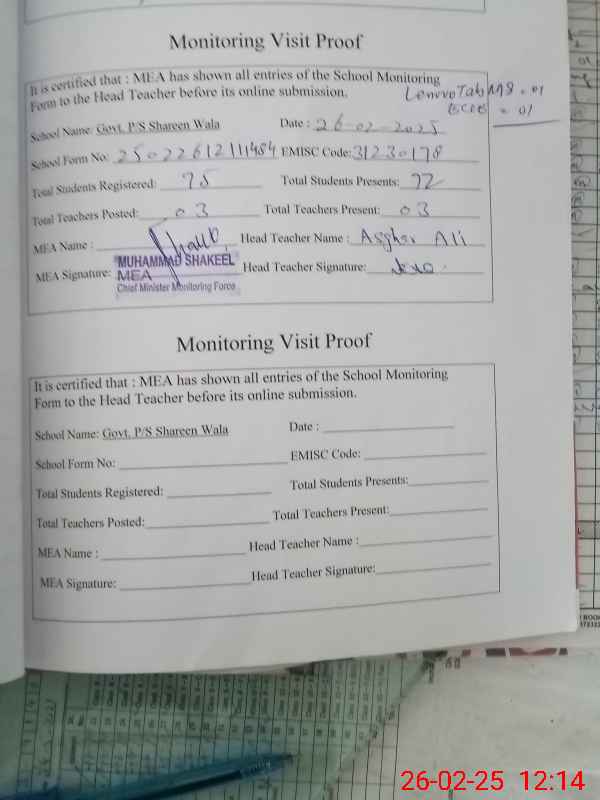 Monitoring Visit Proof
It is certified that : MEA has shown all entries of the School Monitoring
Form to the Head Teacher before its online submission.
Lenovo Tab M8 = 01
= 01
School Name: Govt. P/S Shareen Wala Date : 26-02-2025
School Form No: 25022612111484 EMISC Code: 31230178
Total Students Registered: 75 Total Students Presents: 72
Total Teachers Posted: 03 Total Teachers Present: 03
MEA Name : Head Teacher Name : Asghar Ali
MEA Signature: MUHAMMAD SHAKEEL Head Teacher Signature:
MEA
Chief Minister Monitoring Force
Monitoring Visit Proof
It is certified that : MEA has shown all entries of the School Monitoring
Form to the Head Teacher before its online submission.
School Name: Govt. P/S Shareen Wala Date :
School Form No: EMISC Code:
Total Students Registered: Total Students Presents:
Total Teachers Posted: Total Teachers Present:
MEA Name : Head Teacher Name :
MEA Signature: Head Teacher Signature:
26-02-25 12:14